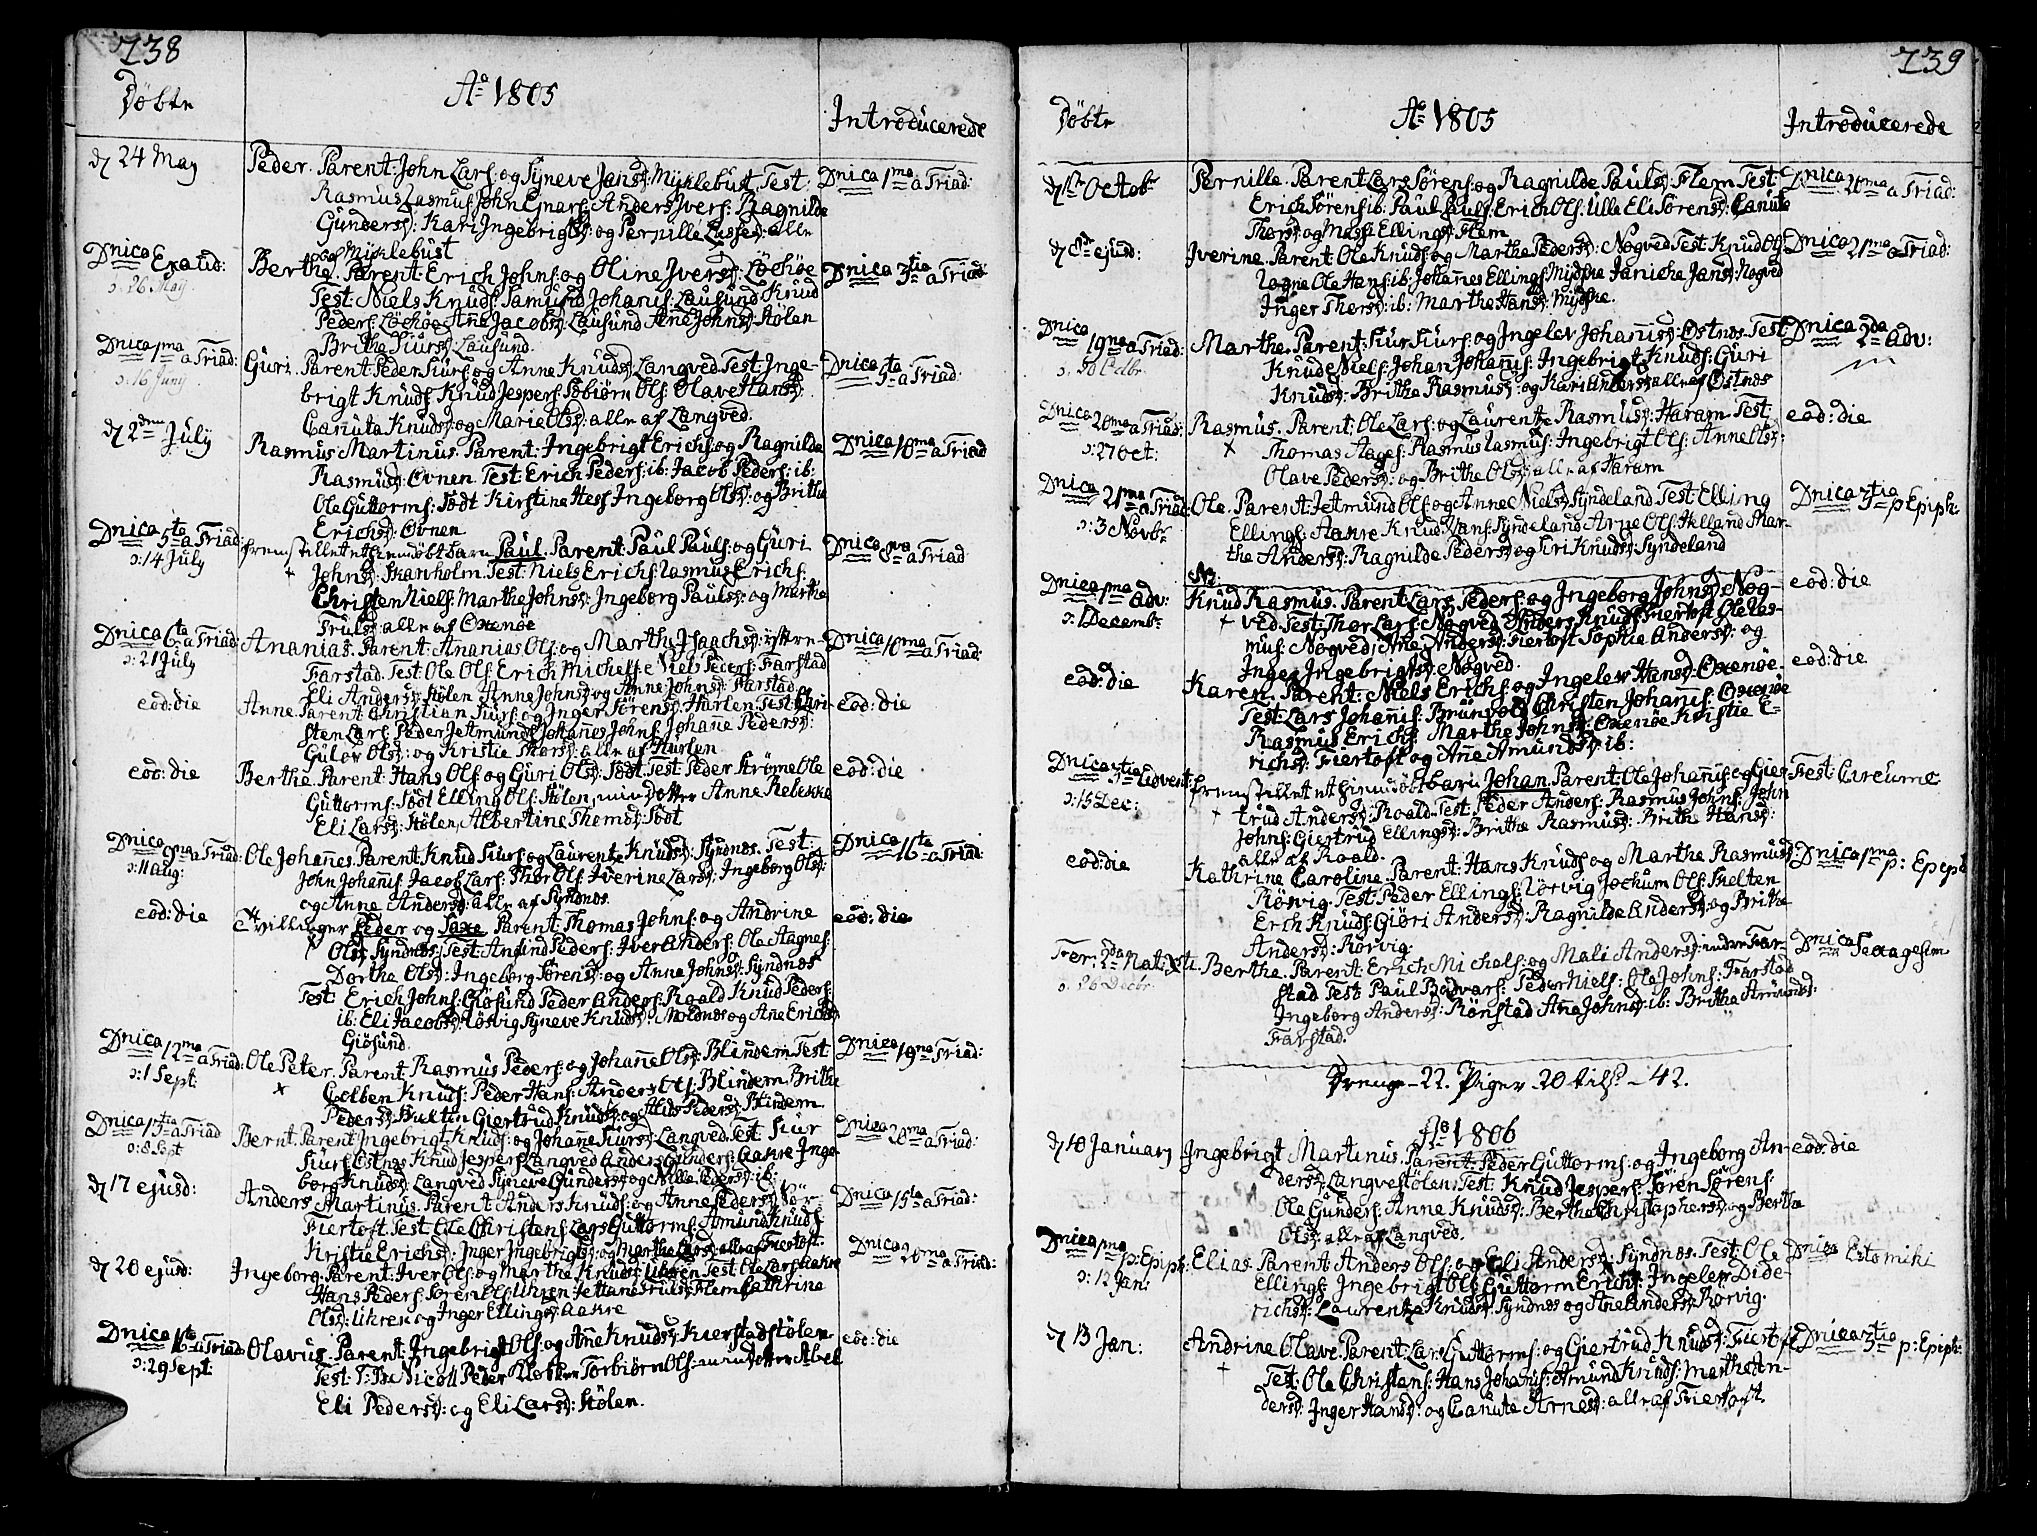 138
Døbte
Aº 1805
Introducerede
d 24 May
Peder. Parent: John Lars: og Syneve Jansd: Myklebust Test:
Dnica 1ma a Triad:
Rasmus Rasmus: John Ejnars: Anders Ivers: Ragnilde
Gundersd: Kari Ingebrigtsd: og Pernille Lassesd: alle
af Myklebust
Dnica Exaud:
ɔ: 26 May.
Berthe. Parent Erich Johns: og Oline Iversd: Löchöe
Dnica 3tia a Triad:
Test: Niels Knuds: Samund Johanis: Lausund Knud
Peders: Löchöe Anne Jacobsd: Lausund Anne Johnsd: Stölen
Brithe Siursd: Lausund.
Dnica 1ma a Triad:
ɔ: 16 Juny.
Guri. Parent: Peder Siurs: og Anne Knudsd: Langved Test: Inge-
Dnica 5ta a Triad:
brigt Knuds: Knud Jespers: Sobiörn Ols: Olave Hansd:
Canuta Knudsd: og Marie Olsd: alle af Langved.
d 2den July
Rasmus Martinus. Parent: Ingebrigt Erichs: og Ragnilde
Dnica 10ma a Triad
Rasmusd: Ovnen Test: Erich Peders: ib: Jacob Peders: ib:
Ole Guttorms: Södt Kirstine Hess Ingeborg Olsd: og Brithe
Erichsd: Ovnen
Dnica 5ta a Triad:
ɔ: 14 July
fremstillet et hiemdöbt barn Paul. Parent: Paul Pauls: og Guri
Dnica 8va a Triad
+ Johnsd: Skarholm. Test: Niels Erichs: Rasmus Erichs:
Christen Niels: Marthe Johnsd: Ingeborg Paulsd: og Marthe
Trulsd: alle af Oxenöe
Dnica 6ta a Triad:
ɔ: 21 July
Ananias. Parent: Ananias Ols: og Marthe Isaachsd: yttre
Dnica 10ma a Triad:
Farstad. Test: Ole Ols: Erich Michels: Niels Peders: Farstad
Eli Andersd: Stölen Anne Johnsd: og Anne Johnsd: Farstad
eod: die
Anne Parent Christian Siurs: og Inger Sörensd: Hurlen Test: Chri-
eod: die
sten Lars: Peder Jetmunds: Johanes Johns: Johane Pedersd:
Gulöv Olsd: og Kristie Thorsd: alle af Hurlen
eod: die
Berthe. Parent: Hans Ols: og Guri Olsd: Södt. Test: Peder Ströme Ole
eod: die
Guttorms: Södt Elling Ols: Stölen, min dotter Anne Rebekke
Eli Larsd: Stölen, Albertine Thomesd: Södt
ɔ: 11 Aug:
Ole Johannes. Parent: Knud Siurs: og Laurentze Knudsd: Syndnes. Test:
Dnica 16ta a Triad:
John Johanis: Jacob Lars: Thor Ols: Iverine Larsd: Ingeborg Olsd:
og Anne Andersd: alle af Syndnes.
eod: die
Tvillinger Peder og Saxe Parent Thomas Johns: og Andrine
eod: die
Olsd: Syndnes: Test: Amund Peders: Iver Anders: Ole Aagnes:
Dorthe Olsd: Ingeborg Sörensd: og Anne Johnsd: Syndnes
Test: Erich Johns: Giösund Peder Anders: Roald Knud Peders:
ib: Eli Jacobsd: Rösvig Syneve Knudsd: Moldnes og Ane Erichsd:
Giösund.
Dnica 12ma a Triad:
ɔ: 1 Sept:
Ole Peter. Parent: Rasmus Peders: og Johane Olsd: Blindem Test:
Dnica 19na a Triad:
+ Colben Knuds: Peder Hans: Anders Ols: Blindem, Brithe
Pedersd: Hulten Giertrud Knudsd: og Alis Pedersd: Blindem.
Dnica 13tia a Triad
ɔ: 8 Sept
Bernt. Parent Ingebrigt Knuds: og Johane Siursd: Langved Test: Siur
Dnica 20ma a Triad:
Siurs: Ostnes Knud Jespers: Langved Anders Gunders: Aakre Inge-
borg Knudsd: Langved Syneve Gundersd: og Alle Pedersd: ib:
d 17 ejusd:
Anders Martinus. Parent Anders Knuds: og Anne Pedersd: Sör-
Dnica 15ta a Triad:
Fiertoft Test: Ole Christens: Lars Guttorms: Amund Knuds:
Kristie Erichsd: Inger Ingebrigtsd: og Marthe Larsd: alle af Fiertoft.
d 20 ejusd:
Ingeborg. Parent: Iver Ols: og Marthe Knudsd: Ulvren Test: Ole Lars: Aakre
Dnica 20ma a Triad:
Hans Peders: Sören Ols: Ulvren Jettane Trulsd: Flem Cathrine
Olsd: Ulvren og Inger Ellingsd: Aakre
Dnica 16ta a Triad
ɔ: 29 Sept:
Olavus. Parent: Ingebrigt Ols: og Ane Knudsd: Kierstadstölen
eod: die
Test: Peder Torbiörn Ols: min dotter Abel
Eli Pedersd: og Eli Larsd: Stölen.
139
Døbte
Aº 1805
Introducerede
d 1te Octobr
Pernille. Parent Lars Sörens: og Ragnilde Paulsd: Flem Test:
Dnica 20ma a Triad:
Erich Sörens: ib: Paul Pauls: Erich Ols: Ulle Eli Sörensd: Canute
Thorsd: og Massi Ellingsd: Flem
d 8de ejusd:
Iverine. Parent Ole Knuds: og Marthe Pedersd: Nogved Test: Knud Ols:
Dnica 21ma a Triad:
Logne Ole Hans: ib: Johannes Ellings: Mydske Janiche Jansd: Nogved
Inger Thorsd: ib: Marthe Hansd: Mydske.
Dnica 19na a Triad:
Marthe. Parent: Siur Siurs: og Ingelev Johanisd: Ostnes. Test:
Dnica 2da Adv:
Knud Niels: Johan Johanis: Ingebrigt Knuds: Guri
Knudsd: Brithe Rasmusd: og Kari Andersd: alle af Ostnes
Dnica 20ma a Triad:
ɔ: 27 Oct:
Rasmus. Parent: Ole Lars: og Laurentze Rasmusd: Haram Test:
eod: die
+ Thomas Aages: Rasmus Rasmus: Ingebrigt Ols: Anne Olsd:
Olave Pedersd: og Brithe Olsd: alle af Haram
Dnica 21ma a Triad:
ɔ: 3 Novbr
Ole. Parent: Jetmund Ols: og Anne Nielsd: Syndeland Test: Elling
Dnica 3tia p Epiph:
Ellings: Aakre Knud Hans: Syndeland Arne Ols: Helland Mar-
the Andersd: Ragnilde Pedersd: og Siri Knudsd: Syndeland
Dnica 1ma Adv:
ɔ: 1 Decembr
Knud Rasmus. Parent: Lars Peders: og Ingeborg Johnsd: Nog-
eod: die
+ ved. Test: Thor Lars: Nogved Anders Knuds: Fiertoft Ole Ras-
mus: Nogved, Ane Andersd: Fiertoft Sophie Andersd: og
Inger Ingebrigtsd: Nogved.
eod: die
Karen. Parent: Niels Erichs: og Ingelev Hansd: Oxenöe
eod: die
Test: Lars Johanis: Brunvold Christen Johanis: Oxenöe
Rasmus Erichs: Marthe Johnsd: Oxenöe Kristie E-
richsd: Fiertoft og Ane Amundsd: ib:
Dnica 3tia Advent:
ɔ: 15 Dec:
fremstillet et hiemdöbt barn Johan. Parent: Ole Johanis: og Gier-
Fest: Circumc
+ trud Andersd: Roald. Test: Peder Anders: Rasmus Johns: John
Johns: Giertrud Ellingsd: Brithe Rasmusd: Brithe Hansd:
alle af Roald.
eod: die
Kathrine Caroline. Parent: Hans Knuds: og Marthe Rasmusd:
Dnica 1ma p: Epiph
Rörvig. Test: Peder Ellings: Rörvig Jochum Ols: Skelten
Erich Knuds: Giöri Andersd: Ragnilde Andersd: og Brithe
Andersd: Rörvig.
Fer: 2da Nat: Xti.
ɔ: 26 Decbr.
Berthe. Parent: Erich Michels: og Mali Andersd: indre Far-
Dnica Sexagesim
stad Test: Paul Bodvars: Peder Niels: Ole Johns: Farstad
Ingeborg Andersd: Rönstad Ane Johnsd: ib: Brithe Amundsd:
Farstad.
Drenge - 22. Piger - 20 tils: - 42.
Aº 1806
d 10 January
Ingebrigt Martinus. Parent: Peder Guttorms: og Ingeborg An-
eod: die
dersd: Langvestölen: Test: Knud Jespers: Sören Sörens:
Ole Gunders: Anne Knudsd: Berthe Christophersd: og Berthe
Olsd: alle af Langved.
Dnica 1ma p: Epiph:
ɔ: 12 Jan:
Elias. Parent: Anders Ols: og Eli Andersd: Syndnes. Test: Ole
Dnica Estomihi
Ellings: Ingebrigt Ols: Guttorm Erichs: Ingelev Dide-
richsd: Laurentze Knudsd: Syndnes og Ane Andersd: Rörvig.
d 13 Jan:
Andrine Olave. Parent: Lars Guttorms: og Giertrud Knudsd: Fiertoft
Dnica 3tia p: Epiph:
+ Test: Ole Christens: Hans Johanis: Amund Knuds: Marthe An-
dersd: Inger Hansd: og Canute Arnesd: alle af Fiertoft.